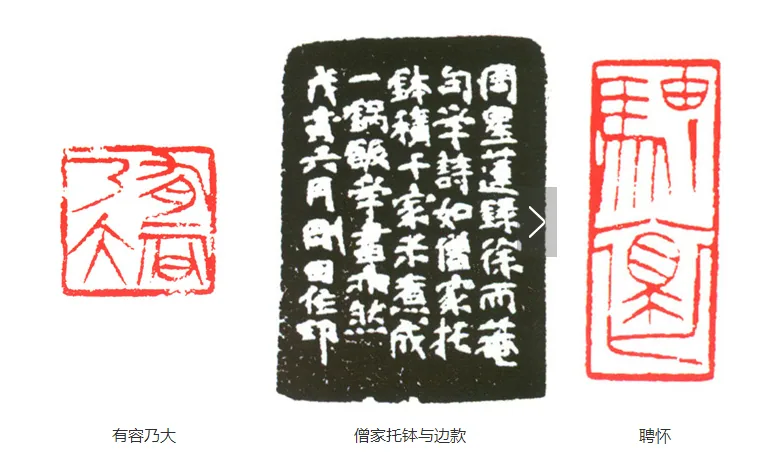 有容
乃大
周星蓮録徐而菴
句学詩如僧家托
鉢積千家米煮成
一鍋飯学書亦然
戊寅六月剛田作印
騁
有容乃大
僧家托钵与边款
聘怀